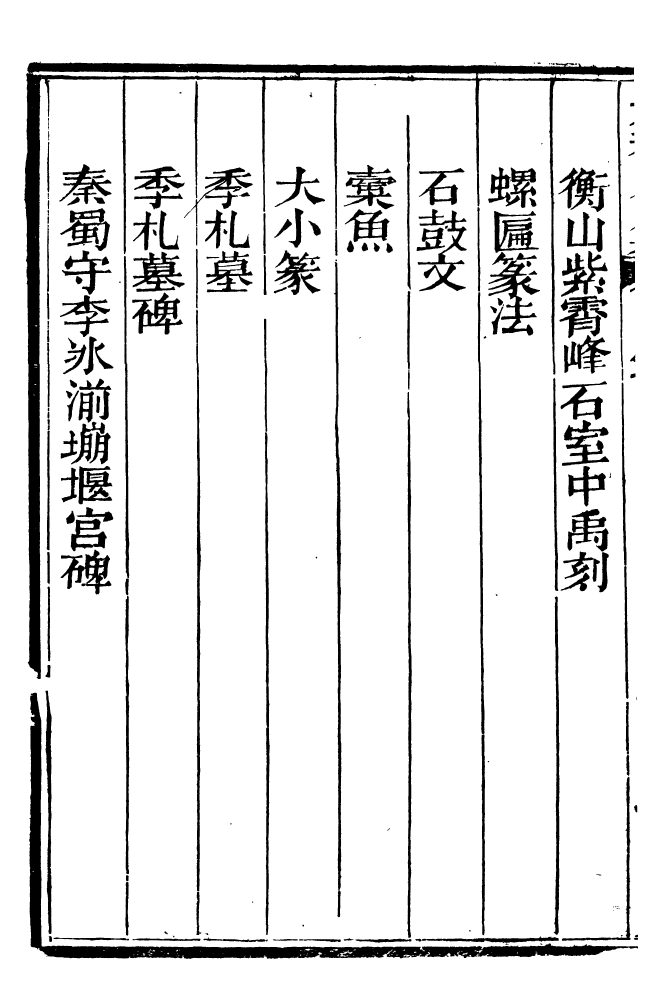 衡山紫霄峰石室中禹刻
螺匾篆法
石鼓文
橐魚
大小篆
季札墓
季札墓碑
秦蜀守李冰湔堋堰官碑